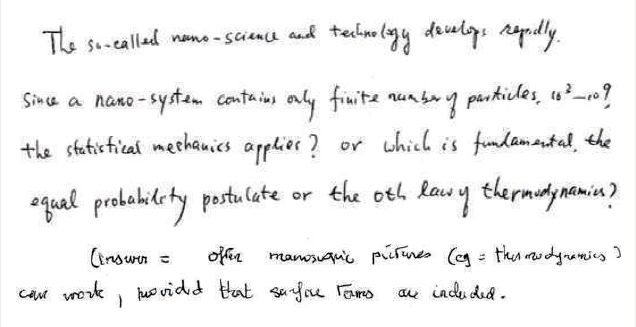 The so-called nano-science and technology develops rapidly.
Since a nano-system contains only finite number of particles, 10²–10⁹,
the statistical mechanics applies? or which is fundamental, the
equal probability postulate or the 0th law of thermodynamics?
(Answer = often macroscopic pictures (eg = thermodynamics)
can work, provided that surface terms are included.